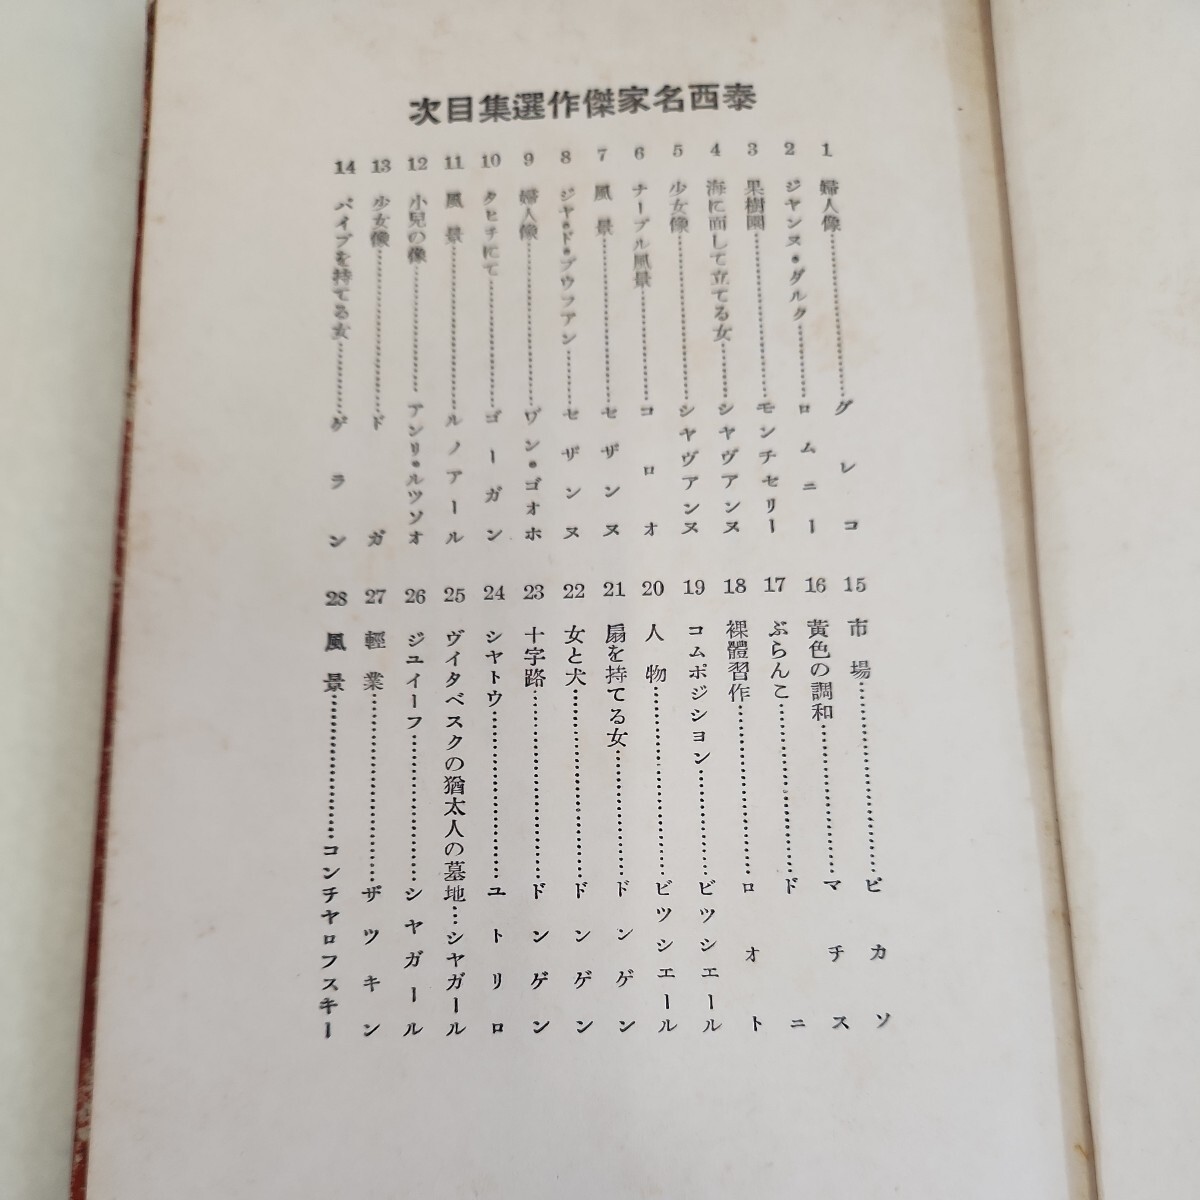 泰西名家傑作選集目次
1 婦人像……………グレコ
2 ジヤンヌ・ダルク……………ロムニー
3 果樹園……………モンチセリー
4 海に面して立てる女……………シヤヴアンヌ
5 少女像……………シヤヴアンヌ
6 ナーブル風景……………コロオ
7 風景……………セザンヌ
8 ジヤ・ド・ブウフアン……………セザンヌ
9 婦人像……………ヴン・ゴオホ
10 タヒチにて……………ゴーガン
11 風景……………ルノアール
12 小兒の像……………アンリ・ルツソオ
13 少女像……………ドガ
14 パイプを持てる女……………ゲラン
15 市場……………ピカソ
16 黃色の調和……………マチス
17 ぶらんこ……………ドニ
18 裸體習作……………ロオト
19 コムポジシヨン……………ビツシエール
20 人物……………ビツシエール
21 扇を持てる女……………ドンゲン
22 女と犬……………ドンゲン
23 十字路……………ドンゲン
24 シヤトウ……………ユトリロ
25 ヴイタベスクの猶太人の墓地…シヤガール
26 ジユイーフ……………シヤガール
27 輕業……………ザツキン
28 風景……………コンチヤロフスキー